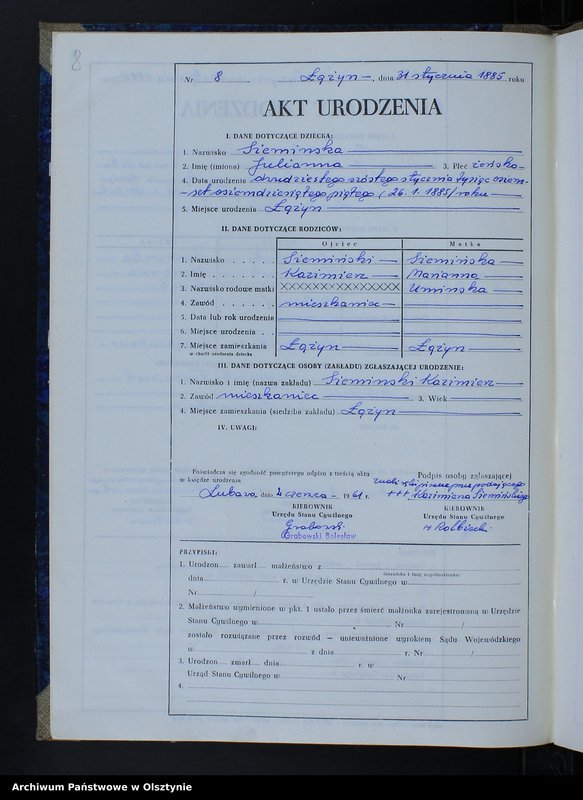 8
Nr 8 Łążyn, dnia 31 stycznia 1885 roku
AKT URODZENIA
I. DANE DOTYCZĄCE DZIECKA:
1. Nazwisko Siemińska
2. Imię (imiona) Julianna 3. Płeć żeńska
4. Data urodzenia dwudziestego szóstego stycznia tysiąc osiem-
set osiemdziesiątego piątego / 26.1.1885 / roku
5. Miejsce urodzenia Łążyn
II. DANE DOTYCZĄCE RODZICÓW:
Ojciec Matka
1. Nazwisko Siemiński Siemińska
2. Imię Kazimierz Marianna
3. Nazwisko rodowe matki XXXXXXXXXXXX Umińska
4. Zawód mieszkaniec
5. Data lub rok urodzenia
6. Miejsce urodzenia
7. Miejsce zamieszkania Łążyn Łążyn
w chwili urodzenia dziecka
III. DANE DOTYCZĄCE OSOBY (ZAKŁADU) ZGŁASZAJĄCEJ URODZENIE:
1. Nazwisko i imię (nazwa zakładu) Siemiński Kazimierz
2. Zawód mieszkaniec 3. Wiek
4. Miejsce zamieszkania (siedziba zakładu) Łążyn
IV. UWAGI:
Poświadcza się zgodność powyższego odpisu z treścią aktu
w księdze urodzenia
Lubawa, dnia czerwca 1961 r.
KIEROWNIK
Urzędu Stanu Cywilnego
Grabowski
Grabowski Bolesław
Podpis osoby zgłaszającej
znaki ręki pisane przez podającego
+++ Kazimierza Siemińskiego
KIEROWNIK
Urzędu Stanu Cywilnego
PRZYPISKI:
1. Urodzon.... zawarł.... małżeństwo z
(nazwisko i imię współmałżonka)
dnia r. w Urzędzie Stanu Cywilnego w
Nr /
2. Małżeństwo wymienione w pkt. 1 ustało przez śmierć małżonka zarejestrowaną w Urzędzie
Stanu Cywilnego w Nr /
zostało rozwiązane przez rozwód — unieważnione wyrokiem Sądu Wojewódzkiego
w z dnia r. Nr /
3. Urodzon.... zmarł.... dnia r. w
Urząd Stanu Cywilnego w Nr
4.
Archiwum Państwowe w Olsztynie